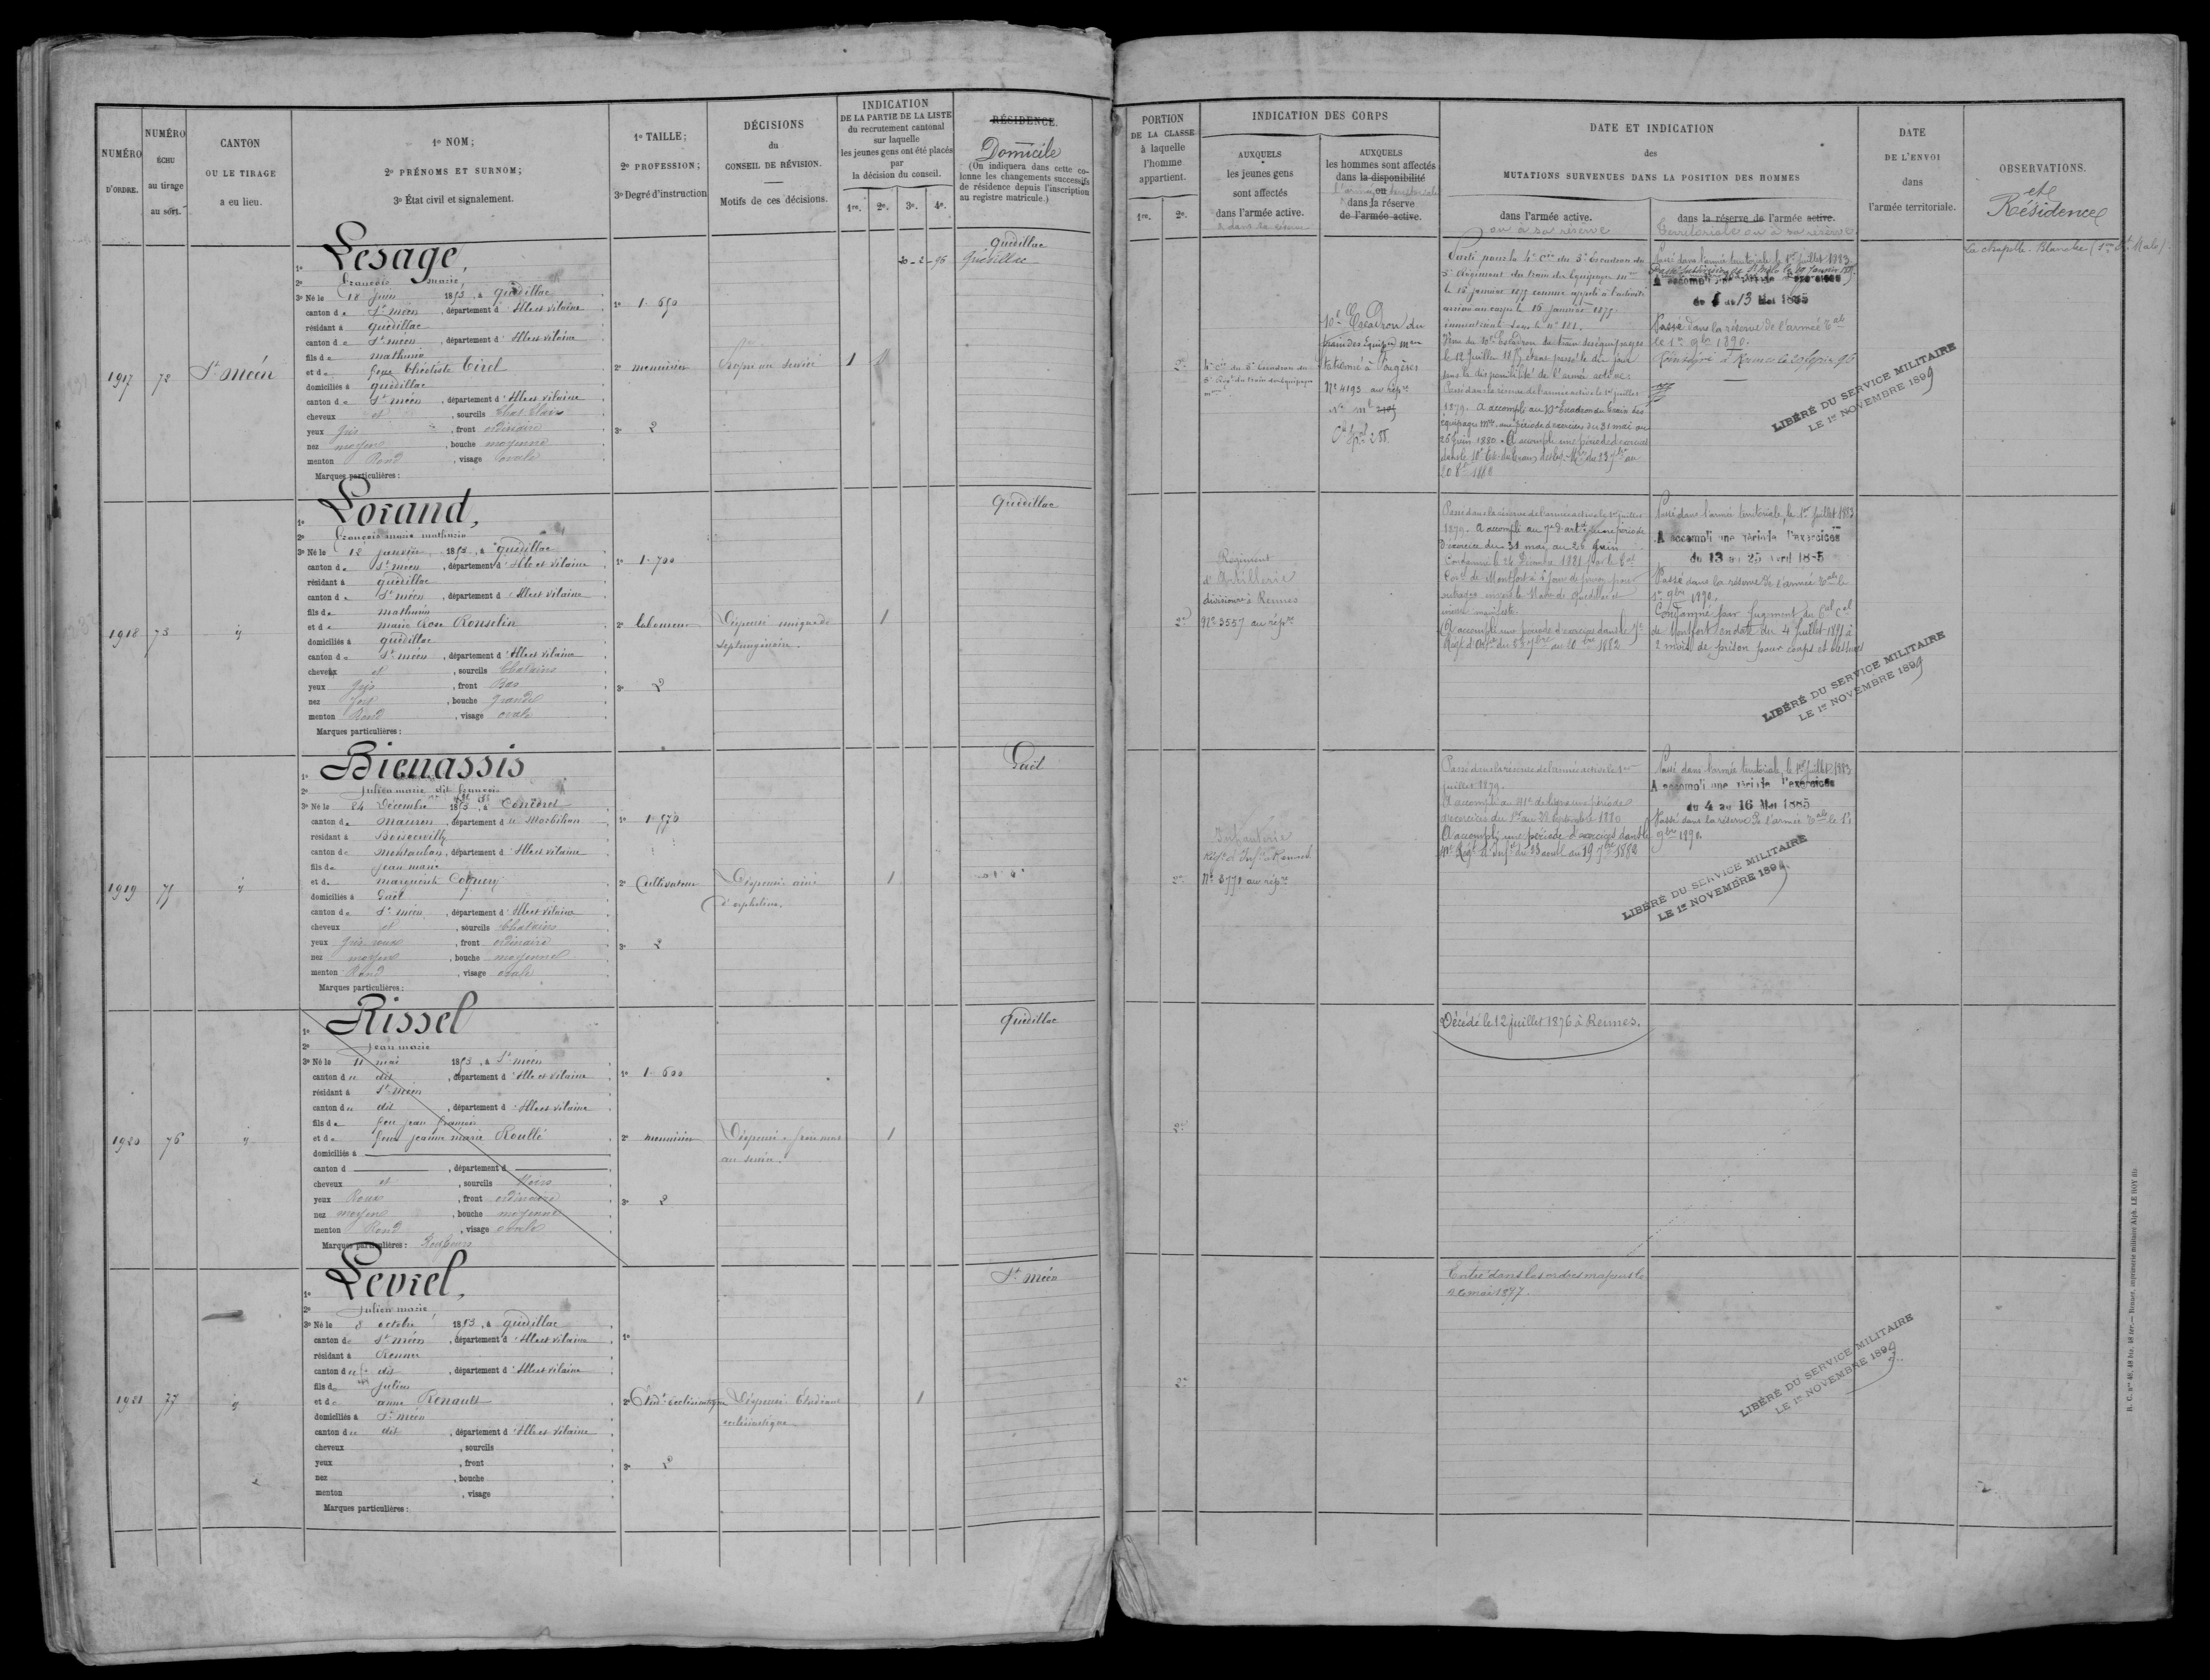 NUMÉRO D'ORDRE.
NUMÉRO ÉCHU au tirage au sort.
CANTON OU LE TIRAGE a eu lieu.
1º NOM;
2º PRÉNOMS ET SURNOM;
3º État civil et signalement.
1º TAILLE;
2º PROFESSION;
3º Degré d'instruction
DÉCISIONS
du
CONSEIL DE RÉVISION.
Motifs de ces décisions.
INDICATION
DE LA PARTIE DE LA LISTE
du recrutement cantonal
sur laquelle
les jeunes gens ont été placés
par
la décision du conseil.
1re. 2e. 3e. 4e.
RÉSIDENCE.
Domicile
(On indiquera dans cette colonne les changements successifs
de résidence depuis l'inscription
au registre matricule.)
PORTION
DE LA CLASSE
à laquelle
l'homme
appartient.
1re. 2e.
INDICATION DES CORPS
AUXQUELS
les jeunes gens
sont affectés
dans l'armée active.
AUXQUELS
les hommes sont affectés
dans la disponibilité
ou
dans la réserve
de l'armée active.
DATE ET INDICATION
des
MUTATIONS SURVENUES DANS LA POSITION DES HOMMES
dans l'armée active.
ou à sa réserve
dans la réserve de l'armée active.
territoriale ou à sa réserve
DATE
DE L'ENVOI
dans
l'armée territoriale.
OBSERVATIONS.
et
Résidence
1917
72
St Méen
1º Lesage,
2º François marie
3º Né le 18 juin 1853, à quédillac
canton de St méen, département d'Ille et vilaine
résidant à quédillac
canton de St méen, département d'Ille et vilaine
fils de mathurin
et de feue Théotiste Tirel
domiciliés à quédillac
canton de St méen, département d'Ille et vilaine
cheveux et, sourcils Chat. Clair
yeux gris, front ordinaire
nez moyen, bouche moyenne
menton Rond, visage ovale
Marques particulières:
1º 1. 650
2º menuisier
3º 2
1
20-2-96
quédillac
Quédillac
2e
4e Cie du 5e Escadron du
5e Régt du train des équipages
10e Escadron du
train des Equipes mres
stationné à Fougères
No 4193 au rép.re
Parti pour la 4e Cie du 5e Escadron du
5e Régiment du train des Equipages mres
le 16 janvier 1875 comme appelé à l'activité
arrivé au corps le 16 janvier 1875
immatriculé sous le no 181.
Passé dans la réserve de l'armée active le 1er juillet
1879. A accompli au 10e Escadron du train des
équipages mres une période d'exercices du 31 mai au
26 juin 1880. A accompli une période d'exercices
20 8bre 1882
Passé dans l'armée territoriale le 1er juillet 1883
A accompli une période d'exercices
du 1 au 13 Mai 1885
Passé dans la réserve de l'armée Tale
le 1er 9bre 1890.
LIBÉRÉ DU SERVICE MILITAIRE
LE 1er NOVEMBRE 1899
La chapelle Blanche
1918
73
id
1º Lorand,
2º François marie mathurin
3º Né le 12 janvier 1853, à quédillac
canton de St méen, département d'Ille et vilaine
résidant à quédillac
canton de St méen, département d'Ille et vilaine
fils de mathurin
et de marie Rose Rousselin
domiciliés à quédillac
canton de St méen, département d'Ille et vilaine
cheveux et, sourcils Chatains
yeux gris, front Bas
nez fort, bouche grande
menton Rond, visage ovale
Marques particulières:
1º 1. 700
2º laboureur
3º 2
Dispensé unique de
septuagénaire.
1
quédillac
2e
Régiment
d'Artillerie
divisionre à Rennes
No 3557 au rép.re
Passé dans la réserve de l'armée active le 1er juillet
1879. A accompli au 7e d'artie une période
d'exercice du 31 mai au 26 juin
Condamné le 24 Décembre 1881 par le Tal
Corel de Montfort à 6 jours de prison pour
outrages envers le Maire de quédillac et
ivresse manifeste
A accompli une période d'exercices dans le 7e
Régt d'Artie du 23 7bre au 20 8bre 1882
Passé dans l'armée territoriale, le 1er juillet 1883
A accompli une période d'exercices
du 13 au 25 Avril 1885
Passé dans la réserve de l'armée Tale le
1er 9bre 1890.
Condamné par jugement du Tal Cel
de Montfort en date du 4 juillet 1891 à
2 mois de prison pour coups et blessures
LIBÉRÉ DU SERVICE MILITAIRE
LE 1er NOVEMBRE 1899
1919
75
id
1º Bienassis
2º Julien marie dit françois
3º Né le 24 Décembre 1853, à Concoret
canton de mauron, département du Morbihan
résidant à Boisgervilly
canton de montauban, département d'Ille et vilaine
fils de jean marie
et de marguerite
domiciliés à Gaël
canton de St méen, département d'Ille et vilaine
cheveux et, sourcils Chatains
yeux gris roux, front ordinaire
nez moyen, bouche moyenne
menton Rond, visage ovale
Marques particulières:
1º 1. 570
2º Cultivateur
3º 2
Dispensé ainé
d'orphelins.
1
Gaël
2e
Infanterie
No 3771 au rép.re
Passé dans la réserve de l'armée active le 1er
juillet 1879.
A accompli au 41e de ligne une période
d'exercices du 1er au 28 Septembre 1880
A accompli une période d'exercices dans le
Passé dans l'armée territoriale, le 1er juillet 1883
A accompli une période d'exercices
du 4 au 16 Mai 1885
Passé dans la réserve de l'armée Tale le 1er
9bre 1890.
LIBÉRÉ DU SERVICE MILITAIRE
LE 1er NOVEMBRE 1899.
1920
76
id
1º Rissel
2º Jean marie
3º Né le 11 mai 1853, à St méen
canton du dit, département d'Ille et vilaine
résidant à St méen
canton du dit, département d'Ille et vilaine
fils de feu jean françois
et de feue jeanne marie Roullé
domiciliés à
canton d, département d
cheveux et, sourcils Noirs
yeux Roux, front ordinaire
nez moyen, bouche moyenne
menton Rond, visage ovale
Marques particulières:
1º 1. 600
2º menuisier
3º 2
Dispensé frère mort
au service.
1
quédillac
2e
Décédé le 12 juillet 1876 à Rennes.
1921
77
id
1º Levrel,
2º Julien marie
3º Né le 8 octobre 1853, à quédillac
canton de St méen, département d'Ille et vilaine
résidant à Rennes
canton du dit, département d'Ille et vilaine
fils de julien
et de anne Renault
domiciliés à St méen
canton du dit, département d'Ille et vilaine
cheveux, sourcils
yeux, front
nez, bouche
menton, visage
Marques particulières:
1º
2º Etudt ecclésiastique
3º 2
Dispensé Etudiant
ecclésiastique
1
St Méen
2e
Entré dans les ordres majeurs le
26 mai 1877.
LIBÉRÉ DU SERVICE MILITAIRE
LE 1er NOVEMBRE 1899
R. C. Nos 48, 48 bis, 48 ter. — Rennes, imprimerie militaire Alph. LE ROY fils